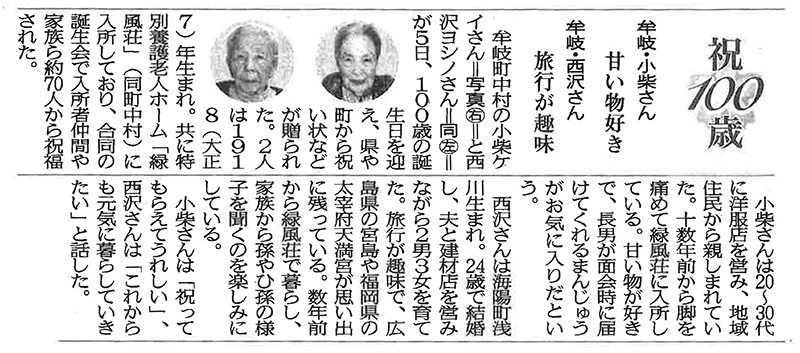 祝
100
歳
牟岐・小柴さん
甘い物好き
牟岐・西沢さん
旅行が趣味
牟岐町中村の小柴ケ
イさん＝写真㊨＝と西
沢ヨシノさん＝同㊧＝
が5日、100歳の誕
生日を迎
え、県や
町から祝
い状など
が贈られ
た。2人
は191
8（大正
7）年生まれ。共に特
別養護老人ホーム「緑
風荘」（同町中村）に
入所しており、合同の
誕生会で入所者仲間や
家族ら約70人から祝福
された。
小柴さんは20～30代
に洋服店を営み、地域
住民から親しまれてい
た。十数年前から脚を
痛めて緑風荘に入所し
ている。甘い物が好き
で、長男が面会時に届
けてくれるまんじゅう
がお気に入りだとい
う。
西沢さんは海陽町浅
川生まれ。24歳で結婚
し、夫と建材店を営み
ながら2男3女を育て
た。旅行が趣味で、広
島県の宮島や福岡県の
太宰府天満宮が思い出
に残っている。数年前
から緑風荘で暮らし、
家族から孫やひ孫の様
子を聞くのを楽しみに
している。
小柴さんは「祝って
もらえてうれしい」、
西沢さんは「これから
も元気に暮らしていき
たい」と話した。